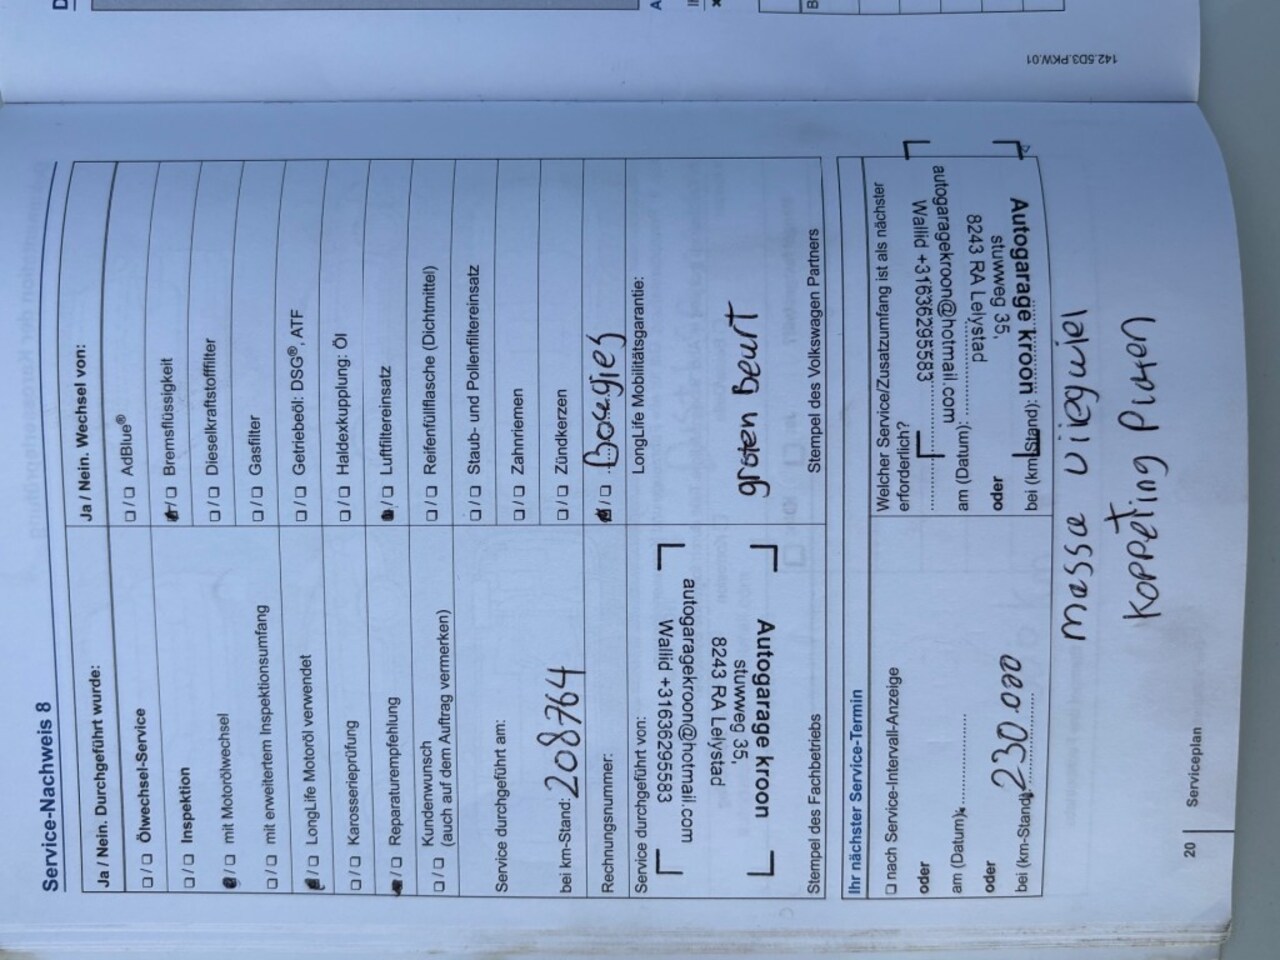 Service-Nachweis 8
Ja / Nein. Durchgeführt wurde:
☐/☐ Ölwechsel-Service
☐/☐ Inspektion
■/☐ mit Motorölwechsel
☐/☐ mit erweitertem Inspektionsumfang
■/☐ LongLife Motoröl verwendet
☐/☐ Karosserieprüfung
■/☐ Reparaturempfehlung
☐/☐ Kundenwunsch
(auch auf dem Auftrag vermerken)
Service durchgeführt am:
bei km-Stand: 208764
Rechnungsnummer:
Service durchgeführt von:
Wallid +31636295583
autogaragekroon@hotmail.com
8243 RA Lelystad
stuwweg 35,
Autogarage kroon
Stempel des Fachbetriebs
Ja / Nein. Wechsel von:
☐/☐ AdBlue®
■/☐ Bremsflüssigkeit
☐/☐ Dieselkraftstofffilter
☐/☐ Gasfilter
☐/☐ Getriebeöl: DSG®, ATF
☐/☐ Haldexkupplung: Öl
■/☐ Luftfiltereinsatz
☐/☐ Reifenfüllflasche (Dichtmittel)
☐/☐ Staub- und Pollenfiltereinsatz
☐/☐ Zahnriemen
☐/☐ Zündkerzen
■/☐ Bougies
LongLife Mobilitätsgarantie:
grote beurt
Stempel des Volkswagen Partners
Ihr nächster Service-Termin
☐ nach Service-Intervall-Anzeige
oder
am (Datum):
oder
bei (km-Stand): 230 000
Welcher Service/Zusatzumfang ist als nächster
erforderlich?
Wallid +31636295583
autogaragekroon@hotmail.com
am (Datum):
8243 RA Lelystad
stuwweg 35,
oder
Autogarage kroon
bei (km-Stand):
massa vliegwiel
koppeling Platen
20
Serviceplan
142.5D3.PKW.01